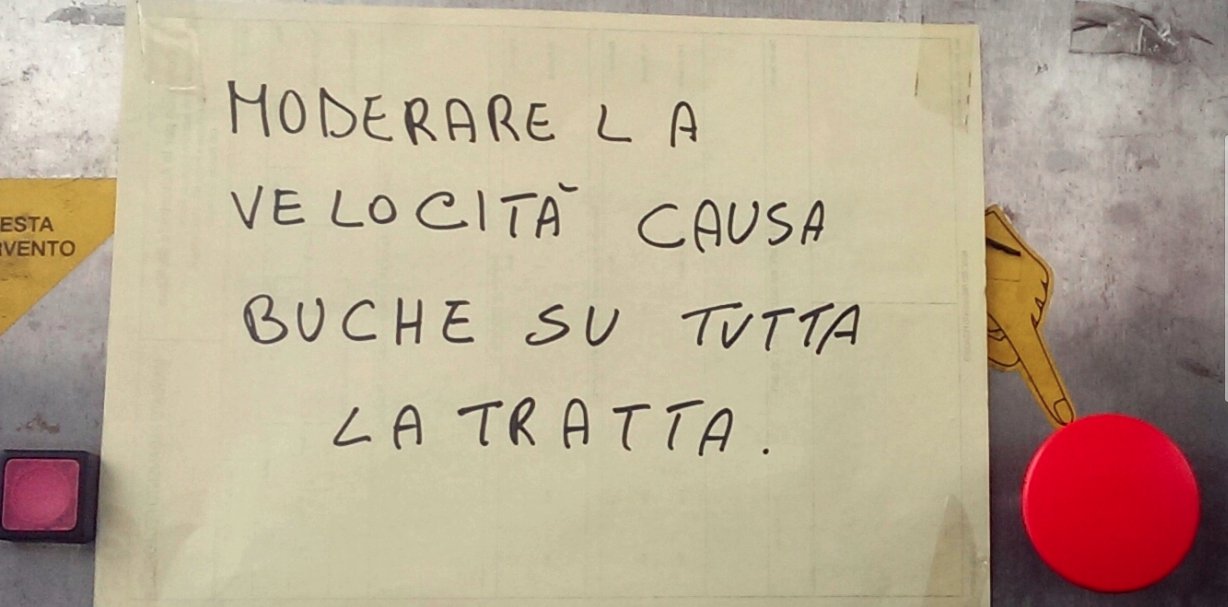 MODERARE LA
VELOCITÀ CAUSA
BUCHE SU TUTTA
LA TRATTA.
ESTA
RVENTO